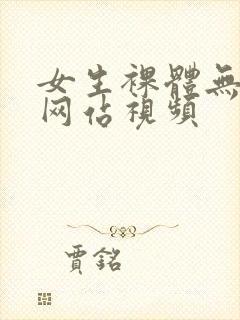 女生裸體無
网估視頻
賈銘